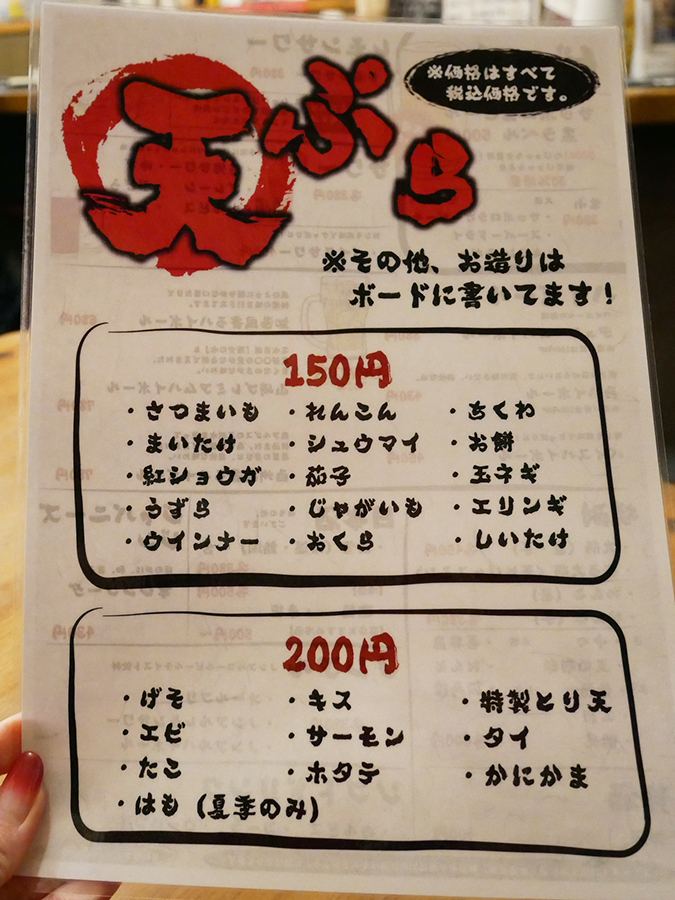 天ぷら
※価格はすべて
税込価格です。
※その他、お造りは
ボードに書いてます！
150円
・さつまいも ・れんこん ・ちくわ
・まいたけ ・シュウマイ ・お餅
・紅ショウガ ・茄子 ・玉ネギ
・うずら ・じゃがいも ・エリンギ
・ウインナー ・おくら ・しいたけ
200円
・げそ ・キス ・特製とり天
・エビ ・サーモン ・タイ
・たこ ・ホタテ ・かにかま
・はも（夏季のみ）